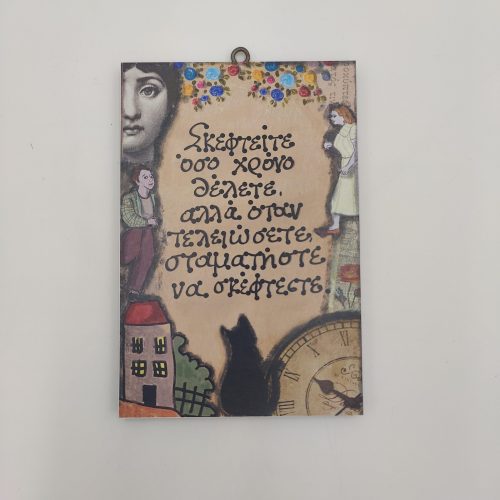 Σκεφτείτε
όσο χρόνο
θέλετε,
αλλά όταν
τελειώσετε,
σταματήστε
να σκέφτεστε.